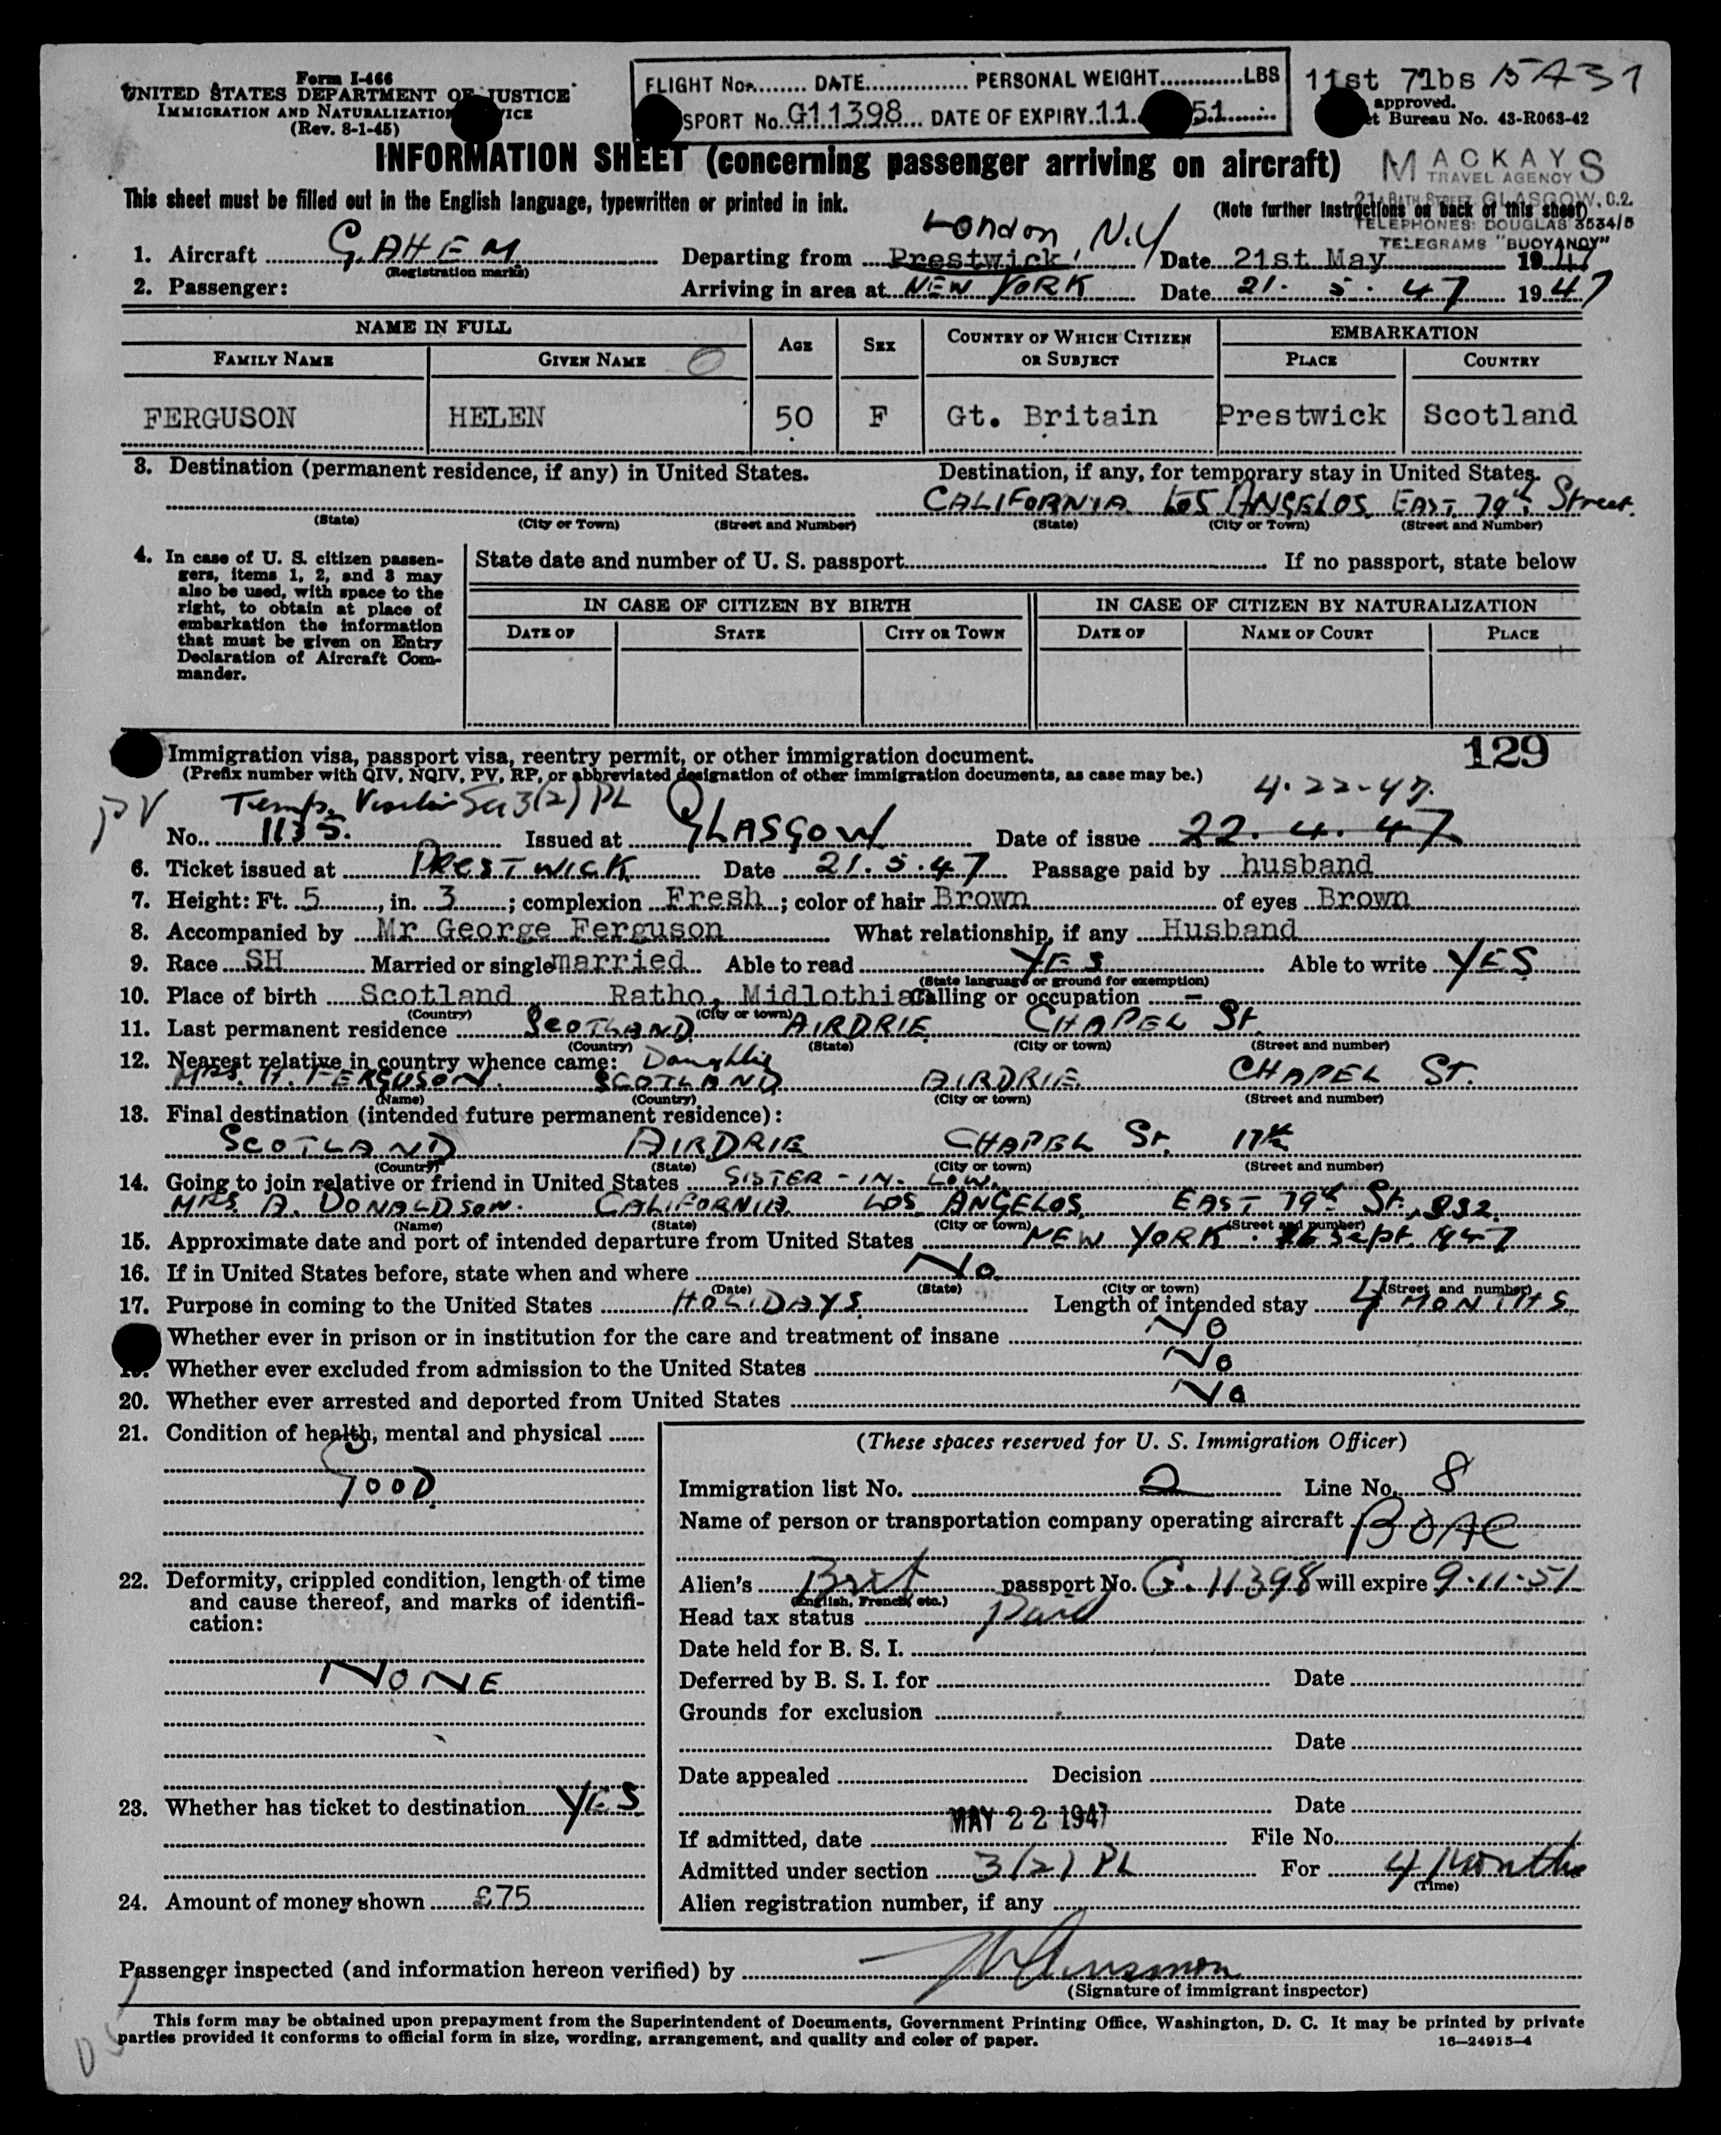 Form I-466
UNITED STATES DEPARTMENT OF JUSTICE
IMMIGRATION AND NATURALIZATION
(Rev. 8-1-45)
FLIGHT No. DATE PERSONAL WEIGHT LBS 11st 7lbs
SPORT No. G11398 DATE OF EXPIRY 11. 51
approved.
Bureau No. 43-R063-42
INFORMATION SHEET (concerning passenger arriving on aircraft)
MACKAYS
TRAVEL AGENCY
This sheet must be filled out in the English language, typewritten or printed in ink.
(Note further instructions on back of this sheet)
GLASGOW, C.2.
TELEPHONES: DOUGLAS 8534/5
TELEGRAMS "BUOYANCY"
London, N.Y
1. Aircraft G.AHEM Departing from Prestwick Date 21st May 1947
(Registration marks)
2. Passenger: Arriving in area at NEW YORK Date 21. 5. 47 1947
NAME IN FULL AGE SEX COUNTRY OF WHICH CITIZEN OR SUBJECT EMBARKATION
FAMILY NAME GIVEN NAME PLACE COUNTRY
FERGUSON HELEN 50 F Gt. Britain Prestwick Scotland
3. Destination (permanent residence, if any) in United States. Destination, if any, for temporary stay in United States.
CALIFORNIA LOS ANGELOS EAST 79th Street.
(State) (City or Town) (Street and Number) (State) (City or Town) (Street and Number)
4. In case of U. S. citizen passengers, items 1, 2, and 3 may also be used, with space to the right, to obtain at place of embarkation the information that must be given on Entry Declaration of Aircraft Commander.
State date and number of U. S. passport If no passport, state below
IN CASE OF CITIZEN BY BIRTH IN CASE OF CITIZEN BY NATURALIZATION
DATE OF STATE CITY OR TOWN DATE OF NAME OF COURT PLACE
129
Immigration visa, passport visa, reentry permit, or other immigration document.
(Prefix number with QIV, NQIV, PV, RP, or abbreviated designation of other immigration documents, as case may be.)
PV Temp. Visitor Sec 3(2) PL 4-22-47.
No. 1135. Issued at GLASGOW Date of issue 22. 4. 47
6. Ticket issued at PRESTWICK Date 21.5.47 Passage paid by husband
7. Height: Ft. 5, in. 3; complexion Fresh; color of hair Brown of eyes Brown
8. Accompanied by Mr George Ferguson What relationship, if any Husband
9. Race SH Married or single married Able to read YES Able to write YES
(State language or ground for exemption)
10. Place of birth Scotland Ratho, Midlothian Calling or occupation -
(Country) (City or town)
11. Last permanent residence SCOTLAND AIRDRIE CHAPEL St.
(Country) (State) (City or town) (Street and number)
12. Nearest relative in country whence came: Daughter
MRS. H. FERGUSON. SCOTLAND AIRDRIE CHAPEL ST.
(Name) (Country) (City or town) (Street and number)
13. Final destination (intended future permanent residence):
SCOTLAND AIRDRIE CHAPEL St.
(Country) (State) (City or town) (Street and number)
14. Going to join relative or friend in United States SISTER-IN-LOW.
MRS A. DONALDSON. CALIFORNIA LOS ANGELOS EAST 79th St., 832.
(Name) (State) (City or town) (Street and number)
15. Approximate date and port of intended departure from United States NEW YORK. Sept. 1947
16. If in United States before, state when and where No.
(Date) (State) (City or town) (Street and number)
17. Purpose in coming to the United States HOLIDAYS Length of intended stay 4 MONTHS.
Whether ever in prison or in institution for the care and treatment of insane No
19. Whether ever excluded from admission to the United States No
20. Whether ever arrested and deported from United States No
21. Condition of health, mental and physical
GOOD
22. Deformity, crippled condition, length of time and cause thereof, and marks of identification:
NONE
23. Whether has ticket to destination YES
24. Amount of money shown £75
(These spaces reserved for U. S. Immigration Officer)
Immigration list No. 2 Line No. 8
Name of person or transportation company operating aircraft BOAC
Alien's Brit passport No. G.11398 will expire 9-11-51
(English, French, etc.)
Head tax status Paid
Date held for B. S. I.
Deferred by B. S. I. for Date
Grounds for exclusion
Date
Date appealed Decision
Date
If admitted, date MAY 22 1947 File No.
Admitted under section 3(2) PL For 4 Months
(Time)
Alien registration number, if any
Passenger inspected (and information hereon verified) by
(Signature of immigrant inspector)
This form may be obtained upon prepayment from the Superintendent of Documents, Government Printing Office, Washington, D. C. It may be printed by private
parties provided it conforms to official form in size, wording, arrangement, and quality and color of paper.
16—24915-4